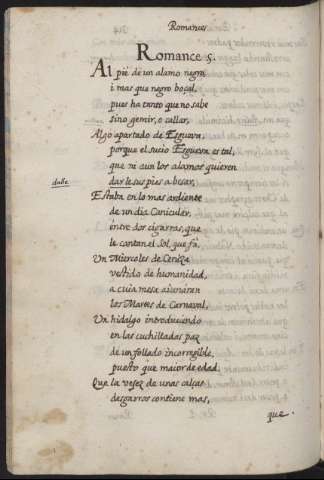 Romances
Romance 5.
Al pie de un alamo negro
i mas que negro boçal,
pues ha tanto que no sabe
sino gemir, o callar,
Algo apartado de Esgueva,
porque el sucio Esgueva es tal,
que ni aun los alamos quieren
dar le sus pies a besar,
dalle
Estaba en lo mas ardiente
de un dia Canicular,
entre dos cigarras, que
le cantan el Sol, que fa,
Un Miercoles de Ceniza
vestido de humanidad,
a cuia mesa aiunaran
los Martes de Carnaval,
Un hidalgo introduciendo
en las cuchilladas paz
de un follado incorregible,
puesto que maior de edad,
Que la vejez de unas calças
desgarros contiene mas,
que